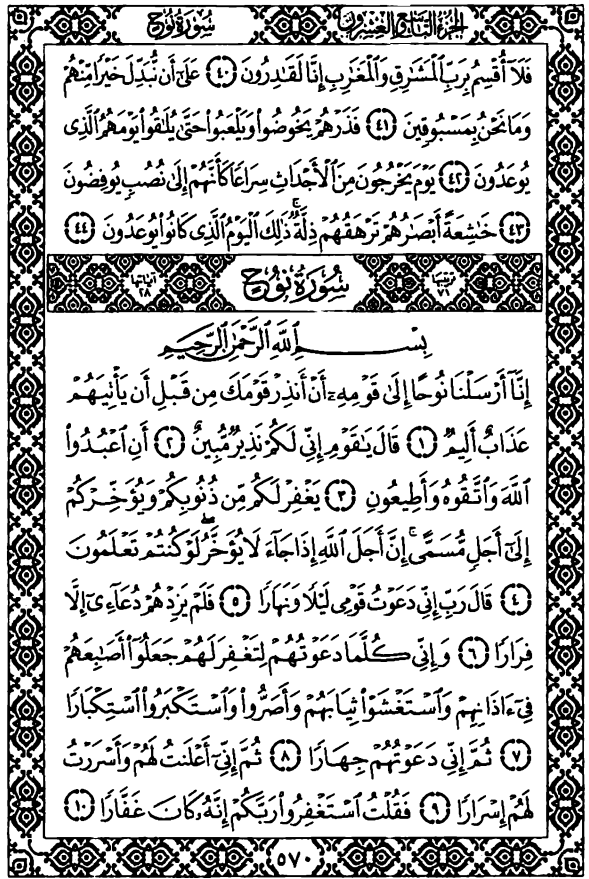 الجزء التاسع والعشرون سورة نوح
فَلَآ أُقْسِمُ بِرَبِّ ٱلْمَشَٰرِقِ وَٱلْمَغَٰرِبِ إِنَّا لَقَٰدِرُونَ ٤٠ عَلَىٰٓ أَن نُّبَدِّلَ خَيْرًا مِّنْهُمْ
وَمَا نَحْنُ بِمَسْبُوقِينَ ٤١ فَذَرْهُمْ يَخُوضُوا۟ وَيَلْعَبُوا۟ حَتَّىٰ يُلَٰقُوا۟ يَوْمَهُمُ ٱلَّذِى
يُوعَدُونَ ٤٢ يَوْمَ يَخْرُجُونَ مِنَ ٱلْأَجْدَاثِ سِرَاعًا كَأَنَّهُمْ إِلَىٰ نُصُبٍ يُوفِضُونَ
٤٣ خَٰشِعَةً أَبْصَٰرُهُمْ تَرْهَقُهُمْ ذِلَّةٌ ۚ ذَٰلِكَ ٱلْيَوْمُ ٱلَّذِى كَانُوا۟ يُوعَدُونَ ٤٤
ترتيبها ٧١ سُورَةُ نُوحٍ آياتها ٢٨
بِسْمِ ٱللَّهِ ٱلرَّحْمَٰنِ ٱلرَّحِيمِ
إِنَّآ أَرْسَلْنَا نُوحًا إِلَىٰ قَوْمِهِۦٓ أَنْ أَنذِرْ قَوْمَكَ مِن قَبْلِ أَن يَأْتِيَهُمْ
عَذَابٌ أَلِيمٌ ١ قَالَ يَٰقَوْمِ إِنِّى لَكُمْ نَذِيرٌ مُّبِينٌ ٢ أَنِ ٱعْبُدُوا۟
ٱللَّهَ وَٱتَّقُوهُ وَأَطِيعُونِ ٣ يَغْفِرْ لَكُم مِّن ذُنُوبِكُمْ وَيُؤَخِّرْكُمْ
إِلَىٰٓ أَجَلٍ مُّسَمًّى ۚ إِنَّ أَجَلَ ٱللَّهِ إِذَا جَآءَ لَا يُؤَخَّرُ ۖ لَوْ كُنتُمْ تَعْلَمُونَ
٤ قَالَ رَبِّ إِنِّى دَعَوْتُ قَوْمِى لَيْلًا وَنَهَارًا ٥ فَلَمْ يَزِدْهُمْ دُعَآءِىٓ إِلَّا
فِرَارًا ٦ وَإِنِّى كُلَّمَا دَعَوْتُهُمْ لِتَغْفِرَ لَهُمْ جَعَلُوٓا۟ أَصَٰبِعَهُمْ
فِىٓ ءَاذَانِهِمْ وَٱسْتَغْشَوْا۟ ثِيَابَهُمْ وَأَصَرُّوا۟ وَٱسْتَكْبَرُوا۟ ٱسْتِكْبَارًا
٧ ثُمَّ إِنِّى دَعَوْتُهُمْ جِهَارًا ٨ ثُمَّ إِنِّىٓ أَعْلَنتُ لَهُمْ وَأَسْرَرْتُ
لَهُمْ إِسْرَارًا ٩ فَقُلْتُ ٱسْتَغْفِرُوا۟ رَبَّكُمْ إِنَّهُۥ كَانَ غَفَّارًا ١٠
٥٧٠